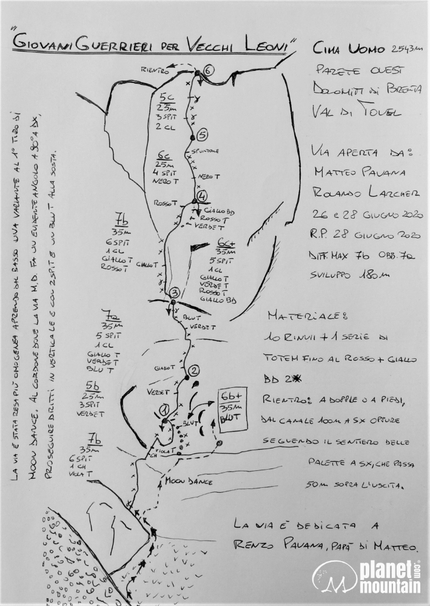 "GIOVANI GUERRIERI PER VECCHI LEONI"
CIMA UOMO 2543m
PARETE OVEST
DOLOMITI DI BRENTA
VAL DI TOVEL
VIA APERTA DA:
MATTEO PAVANA
ROLANDO LARCHER
26 E 28 GIUGNO 2020
R.P. 28 GIUGNO 2020
DIFF. MAX 7b OBB. 7a
SVILUPPO 180m
MATERIALE:
10 RINVII + 1 SERIE DI
TOTEM FINO AL ROSSO + GIALLO
BD 2
RIENTRO: A DOPPIE O A PIEDI,
DAL CANALE 100m A SX OPPURE
SEGUENDO IL SENTIERO DELLE
PALETTE A SX, CHE PASSA
50m SOPRA L'USCITA.
LA VIA È DEDICATA A
RENZO PAVANA, PAPÀ DI MATTEO.
LA VIA È STATA RESA PIÙ OMOGENEA APRENDO DAL BASSO UNA VARIANTE AL 1° TIRO DI
MOON DANCE. AL CORDONE DOVE LA VIA M.D. FA UN EVIDENTE ANGOLO A 90° A DX,
PROSEGUIRE DRITTI IN VERTICALE E CON 2 SPIT E UN BLUT ALLA SOSTA.
RIENTRO
6
5c
25m
3 SPIT
2 CL
5
SPUNTONE
6c
25m
4 SPIT
NERO T
NERO T
4
ROSSO T
GIALLO BD
ROSSO T
VERDE T
7b
35m
6 SPIT
1 CL
GIALLO T
ROSSO T
GIALLO T
6c+
35m
5 SPIT
1 CL
GIALLO T
VERDE T
ROSSO T
GIALLO BD
3
7a
35m
5 SPIT
1 CL
GIALLO T
VERDE T
BLU T
BLU T
VERDE T
GIALLO T
2
5b
25m
3 SPIT
VERDE T
VERDE T
1
BLU T
6b+
35m
BLU T
7b
35m
6 SPIT
1 CH
VIOLA T
CH
VIOLA T
MOON DANCE
planet
mountain
.com